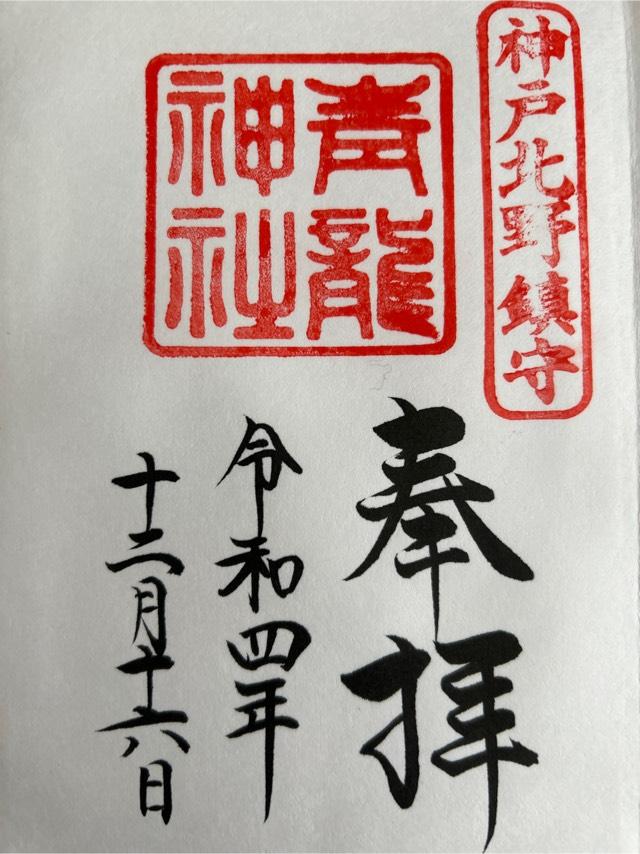 神戸北野鎮守
青龍
神社
奉拝
令和四年
十二月十六日